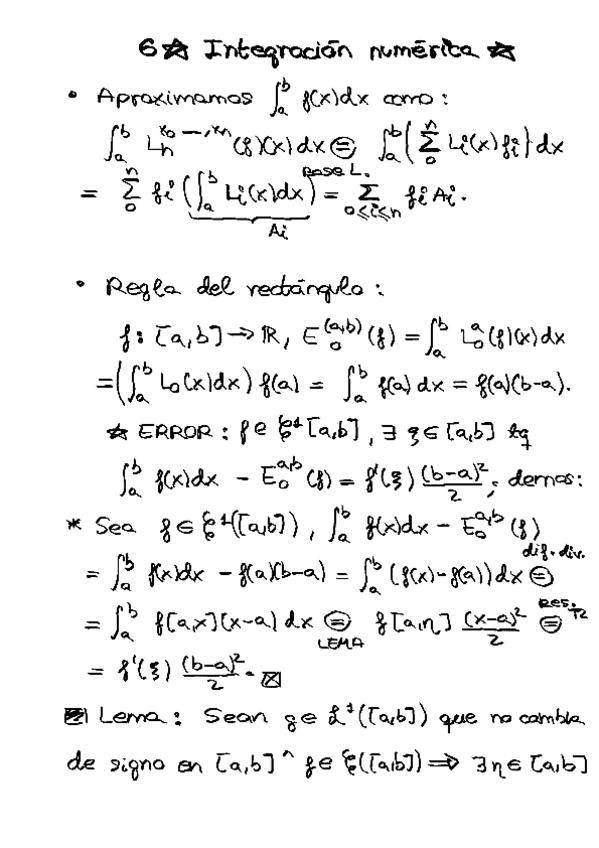 6☆ Integración numérica ☆
• Aproximamos ∫_a^b f(x)dx como:
∫_a^b L_n^{x_0—,x_n}(f)(x)dx ⊜ ∫_a^b {Σ_0^n L_i(x)f_i}dx
base L.
= Σ_0^n f_i (∫_a^b L_i(x)dx) = Σ_{0≤i≤n} f_i A_i.
A_i
• Regla del rectángulo:
f: [a,b] → ℝ, E_0^{(a,b)}(f) = ∫_a^b L_0^a(f)(x)dx
= (∫_a^b L_0(x)dx) f(a) = ∫_a^b f(a)dx = f(a)(b-a).
☆ ERROR: f∈ℰ^1[a,b], ∃ ξ∈[a,b] tq
∫_a^b f(x)dx - E_0^{a,b}(f) = f'(ξ) (b-a)²/2; demos:
* Sea f∈ℰ^1([a,b]), ∫_a^b f(x)dx - E_0^{a,b}(f)
dif. div.
= ∫_a^b f(x)dx - f(a)(b-a) = ∫_a^b (f(x)-f(a))dx ⊜
= ∫_a^b f[a,x](x-a)dx ⊜ f[a,η] (x-a)²/2 ⊜ Res. T2
LEMA
= f'(ξ) (b-a)²/2. ⊠
Lema: Sean g∈ℒ^1([a,b]) que no cambia
de signo en [a,b] ^ f∈ℰ([a,b]) ⇒ ∃η∈[a,b]